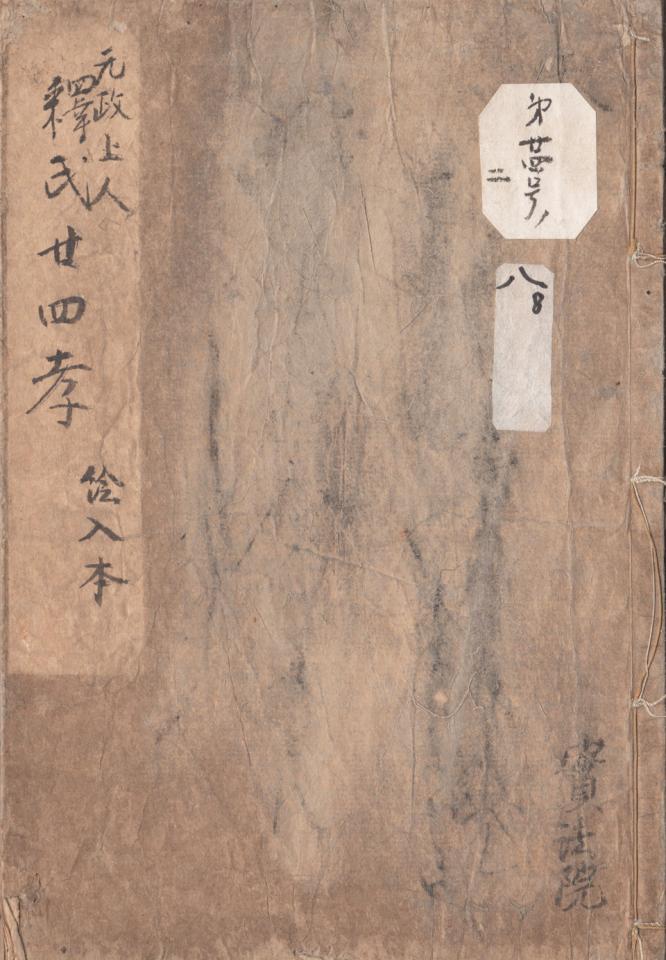 第廿四号ノ
二
八
8
實法院
元政上人
釋氏廿四孝
繪入本